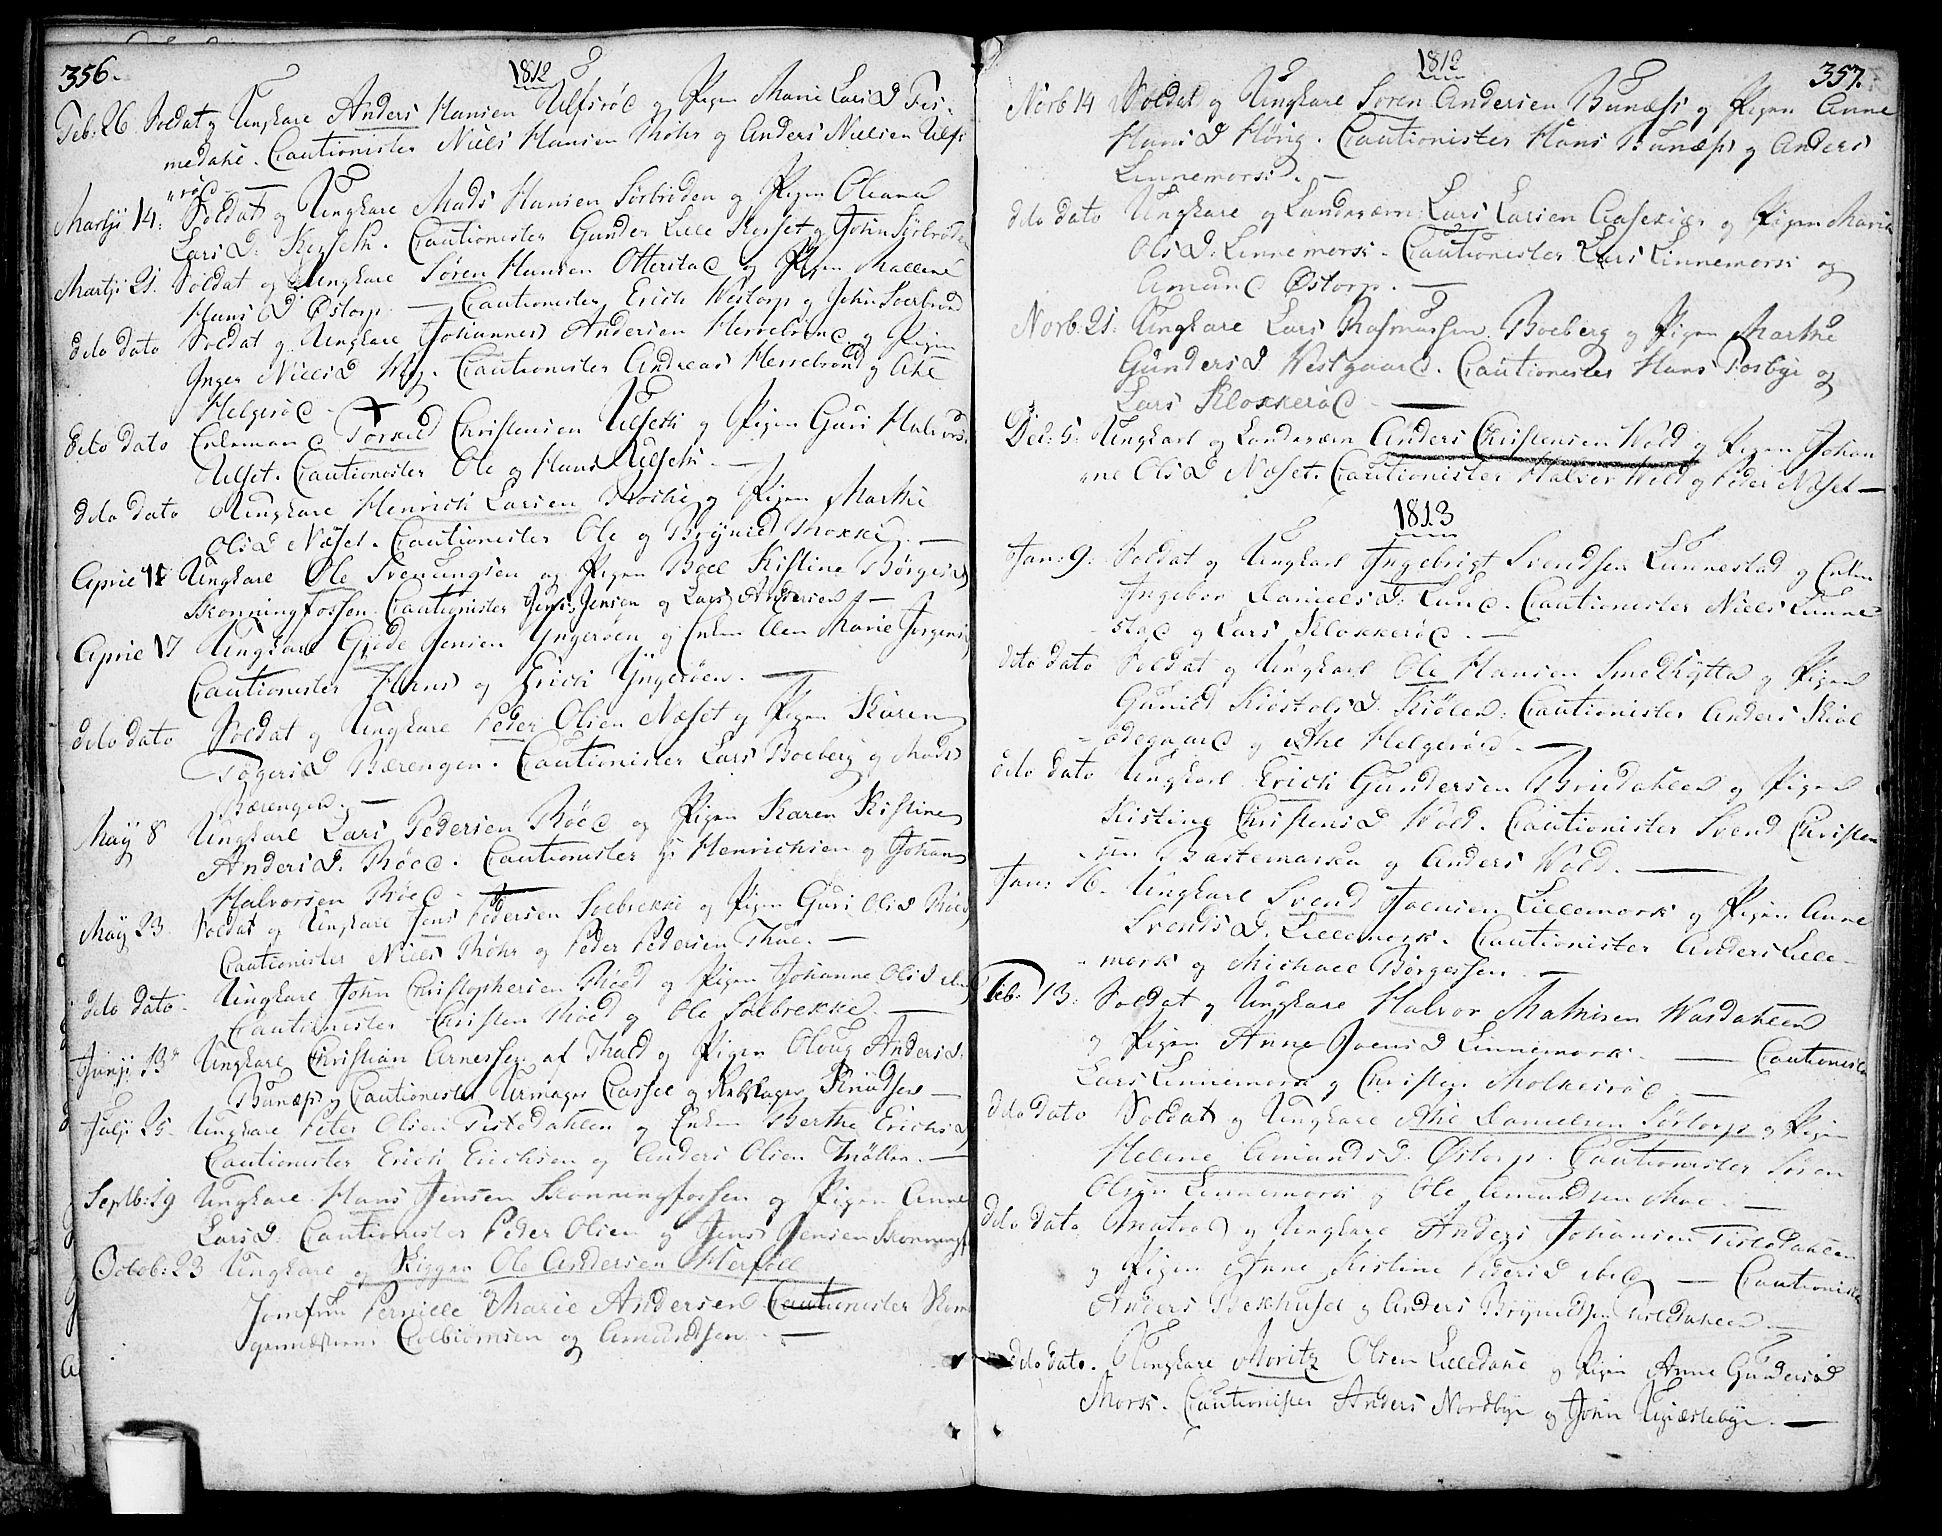 356.
1812
Feb: 26. Soldat og Ungkarl Anders Hansen Ulfsröd og Pigen Marie LarsD Tis-
medahl. Cautionister Niels Hansen Mohr og Anders Nielsen Ulfs
"röd. —
Martji 14. Soldat og Ungkarl Mads Hansen Sörbröden og Pigen Oleana
LarsD: Kirseth. Cautionister Gunder Lille Kirset og John Sörbröden
Martji 21. Soldat og Ungkarl Sören Hansen Otterstad og Pigen Mallene
HansD Östorp. — Cautionister Erich Westorp og John Soelbrod
dito dato Soldat og Ungkarl Johannes Andersen Herrebrond og Pigen
Inger NielsD. Cautionister Andreas Herrebrond og Ahle
Helgeröd —
dito dato Enkemand Torkild Christensen Ulseth og Pigen Guri Halvors
Ulset. Cautionister Ole og Hans Ulseth. —
dito dato Ungkarl Henrich Larsen og Pigen Marthe
OlsD Næset. Cautionister Ole og Brynild. —
Aprie Ungkarl Ole Svenungsen og Pigen Boel Kistine BörgesD
Skonningfossen. Cautionister Jens Jensen og Lars Andersen —
Aprie 17 Ungkarl Giöde Jensen Yngeröen og Enken Ellen Marie JörgensD
Cautionister Hans og Erich Yngeröen. —
dito dato Soldat og Ungkarl Peder Olsen Næset og Pigen Karen
TögersD Bærengen. Cautionister Lars Boeberg og Mads
Bærengen. —
Maÿ 8 Ungkarl Lars Pedersen Röed og Pigen Karen Kistine
AndersD. Röed. Cautionister Henrichsen og Johan
Halvorsen Röed —
Maÿ 23. Soldat og Ungkarl Jens Pedersen Soebrekke og Pigen Guri OlsD Röed
Cautionister Niels Mohr og Peder Pedersen Thue. —
dito dato. Ungkarl John Christophersen Röed og Pigen Johanne OlsD
Cautionister Christen Röed og Ole Soebrekke. —
Junji 13 Ungkarl Christian Arnessen af Thad og Pigen Oloug AndersD.
Bunæs og Cautionister Urmager Cassel og Knudsen —
Julji 25. Ungkarl Peter Olsen Tistedahlen og Enken Berthe ErichsD
Cautionister Erich Erichsen og Anders Olsen Möller. —
Septb: 19 Ungkarl Hans Jensen Skonningfossen og Pigen Anne
LarsD. Cautionister Peder Olsen og Jens Jensen Skonningf
Octob: 23 Ungkarl og Ole Andersen Herföll
Jomfru Pernille Marie Andersen Cautionister
Colbiörnsen og Amundsen. —
357.
1812
Novb 14 Soldat og Ungkarl Sören Andersen Bunæs og Pigen Anne
HansD Höng. Cautionister Hans Bunæs og Anders
Linnemork. —
dito dato Ungkarl og Landværn: Lars Larsen Aasekiær og Pigen Maria
OlsD. Linnemork. Cautionister Lars Linnemork og
Amund Östorp. —
Novb: 21. Ungkarl Lars Rasmussen Boeberg og Pigen Marthe
GundersD Westgaard. Cautionister Hans Torbye og
Lars Klokkeröd —
Dec: 5. Ungkarl og Landværn Anders Christensen Wold og Pigen Johan
"ne OlsD Næset. Cautionister Halvor Wold og Peder Næset —
1813
Jan: 9. Soldat og Ungkarl Ingebrigt Svendsen Lunnestad og Enken
Ingebor DanielsD: Lund. Cautionister Niels Lunne-
stad og Lars Klokkeröd. —
dito dato Soldat og Ungkarl Ole Hansen Smedhytta og Pigen
Gunild KiöstolsD. Kiölen: Cautionister Anders Kiöl
ödegaard og Ahle Helgeröd. —
dito dato Ungkarl Erich Gundersen Brudahlen og Pigen
Kistine ChristensD Wold. Cautionister Svend Christen
sen Bastemarken og Anders Wold. —
Jan: 16. Ungkarl Svend Joensen Lillemork og Pigen Anne
SvendsD. Lillemork. Cautionister Anders Lille-
mork og Michael Börgessen. —
Feb. 13. Soldat og Ungkarl Halvor Mathisen Wardahlen
og Pigen Anne JoensD Linnemork. — Cautionister
Lars Linnemork og Christen Molkesröd —
dito dato Soldat og Ungkarl Ahle Danielsen Sörtorp og Pigen
Helene AmundsD. Östorp. Cautionister Sören
Olsen Linnemork og Ole Amundsen Moe. —
dito dato Matros og Ungkarl Anders Johansen Tistedahlen
og Pigen Anne Kistine PedersD ibid — Cautionister
Anders Bekhuset og Anders Brynildsen Tistedahlen. —
dito dato. Ungkarl Moritz Olsen Lilledahl og Pigen Anne GundersD
Mork. Cautionister Anders Nordbye og John Ugiestebye. —